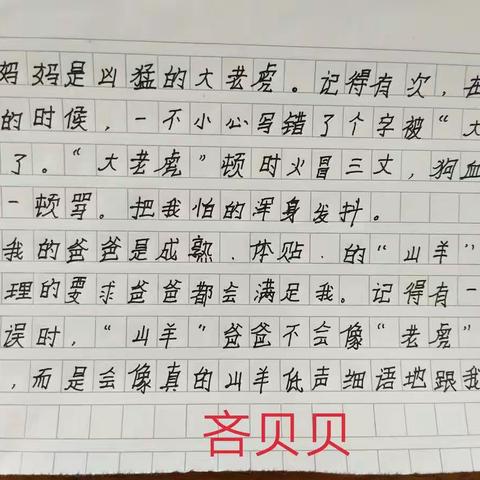 妈妈是凶猛的大老虎。记得有次，在
的时候，一不小心写错了个字被“大
了。“大老虎”顿时火冒三丈，狗血
一顿骂。把我怕的浑身发抖。
我的爸爸是成熟、体贴、的“山羊”
理的要求爸爸都会满足我。记得有一
误时，“山羊”爸爸不会像“老虎”
，而是会像真的山羊低声细语地跟我
吝贝贝